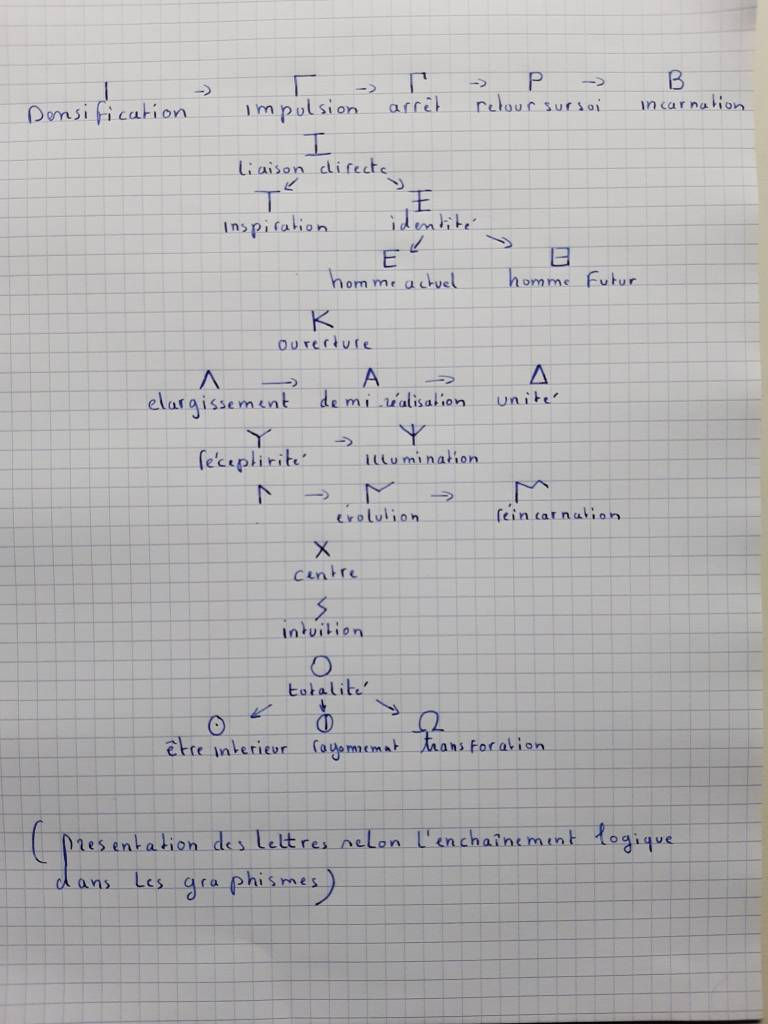 Ι → Γ → Γ → Ρ → Β
Densification impulsion arrêt retour sur soi incarnation
I
liaison directe
T E
inspiration identité
E 日
homme actuel homme Futur
K
ouverture
Λ → A → Δ
elargissement demi-réalisation unité
Y → Ψ
réceptirité illumination
→ →
évolution réincarnation
X
centre
S
intuition
O
totalité
⊙ ⦶ Ω
être interieur rayonnemat transforation
(presentation des lettres selon l'enchaînement logique
dans les graphismes)